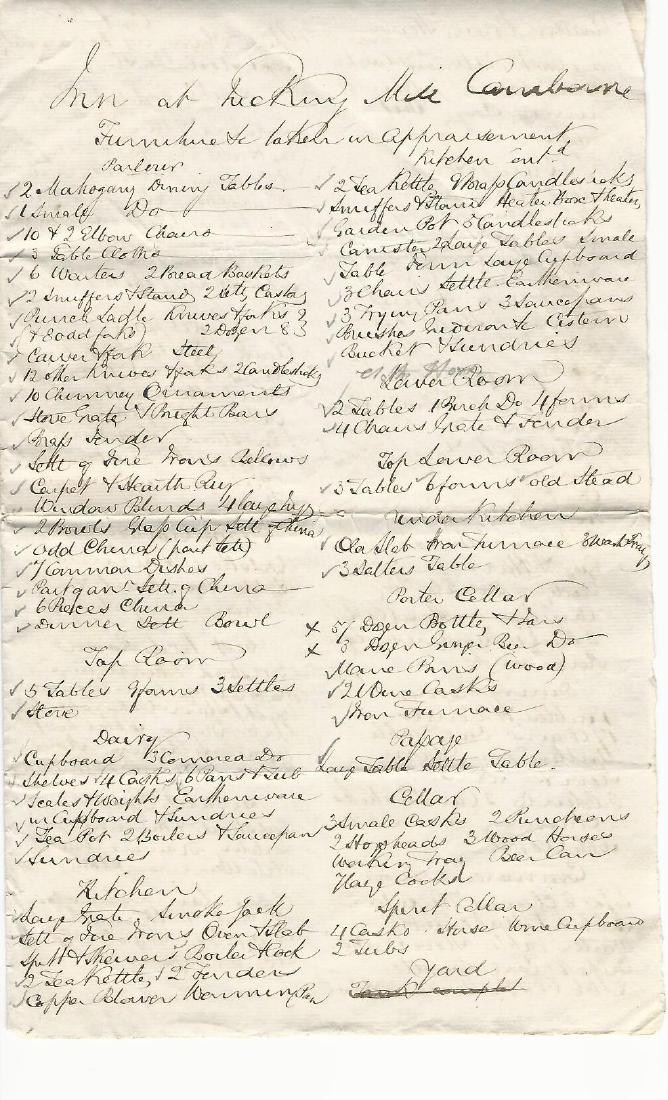 Inn at Tucking Mill Camborne
Furniture &c taken in appraisement
Parlour
2 Mahogany Dining Tables
1 Small Do
10 & 2 Elbow Chairs
3 Table Cloths
6 Waiters 2 Bread Baskets
2 Snuffers & Stands 2 Setts Castors
Punch Ladle Knives & forks 2
(& 6 odd forks) 2 Dozen & 3
Carver & fork Steel
12 other Knives & forks 2 Candlesticks
10 Chimney Ornaments
Stove Grate & Bright Bars
Brass Fender
Sett of Fire Irons Bellows
Carpet & Hearth Rug
Window Blinds 4 large Jugs
2 Bowls Glass Cup Sett of China
Odd China (part sett)
7 Common Dishes
Part of an Sett of China
6 Pieces China
Dinner Sett Bowl
Tap Room
5 Tables forms 3 Settles
Stove
Dairy
Cupboard 3 Cornered Do
Shelves 4 Casks 6 Pans & Tub
Scales & Weights Earthenware
in Cupboard & Sundries
Tea Pot 2 Boilers & Saucepan
Sundries
Kitchen
Large Grate Smoke Jack
Sett of Fire Irons Oven & Slab
Spitt & Skewers Boiler & Cock
2 Tea Kettles 2 Fenders
Copper Blower Warming Pan
Kitchen Cont.d
2 Tea Kettle, Brass Candlesticks
Snuffers & Stand Heater Box & Heaters
Garden Pot 3 Candlesticks
Canister 2 Large Tables Small
Table Form Large Cupboard
3 Chairs Settle Earthenware
3 Frying Pans 3 Saucepans
Brushes Cistern
Bucket & Sundries
Lower Room
2 Tables 1 Birch Do 4 forms
4 Chairs Grate & Fender
Top Lower Room
3 Tables 6 forms old Stead
Under Kitchen
Old Slab Iron Furnace 3 Wash Trays
3 Salters Table
Porter Cellar
5 Dozen Bottle, & Jars
3 Dozen Ginger Beer Do
Pans (wood)
2 Wine Casks
Iron Furnace
Passage
Large Table Settle Table
Cellar
3 Small Casks 2 Puncheons
2 Hogsheads 3 Wood Horses
Working Tray Beer Can
Cocks
Spirit Cellar
4 Casks Horse Wine Cupboard
2 Tubs
Yard